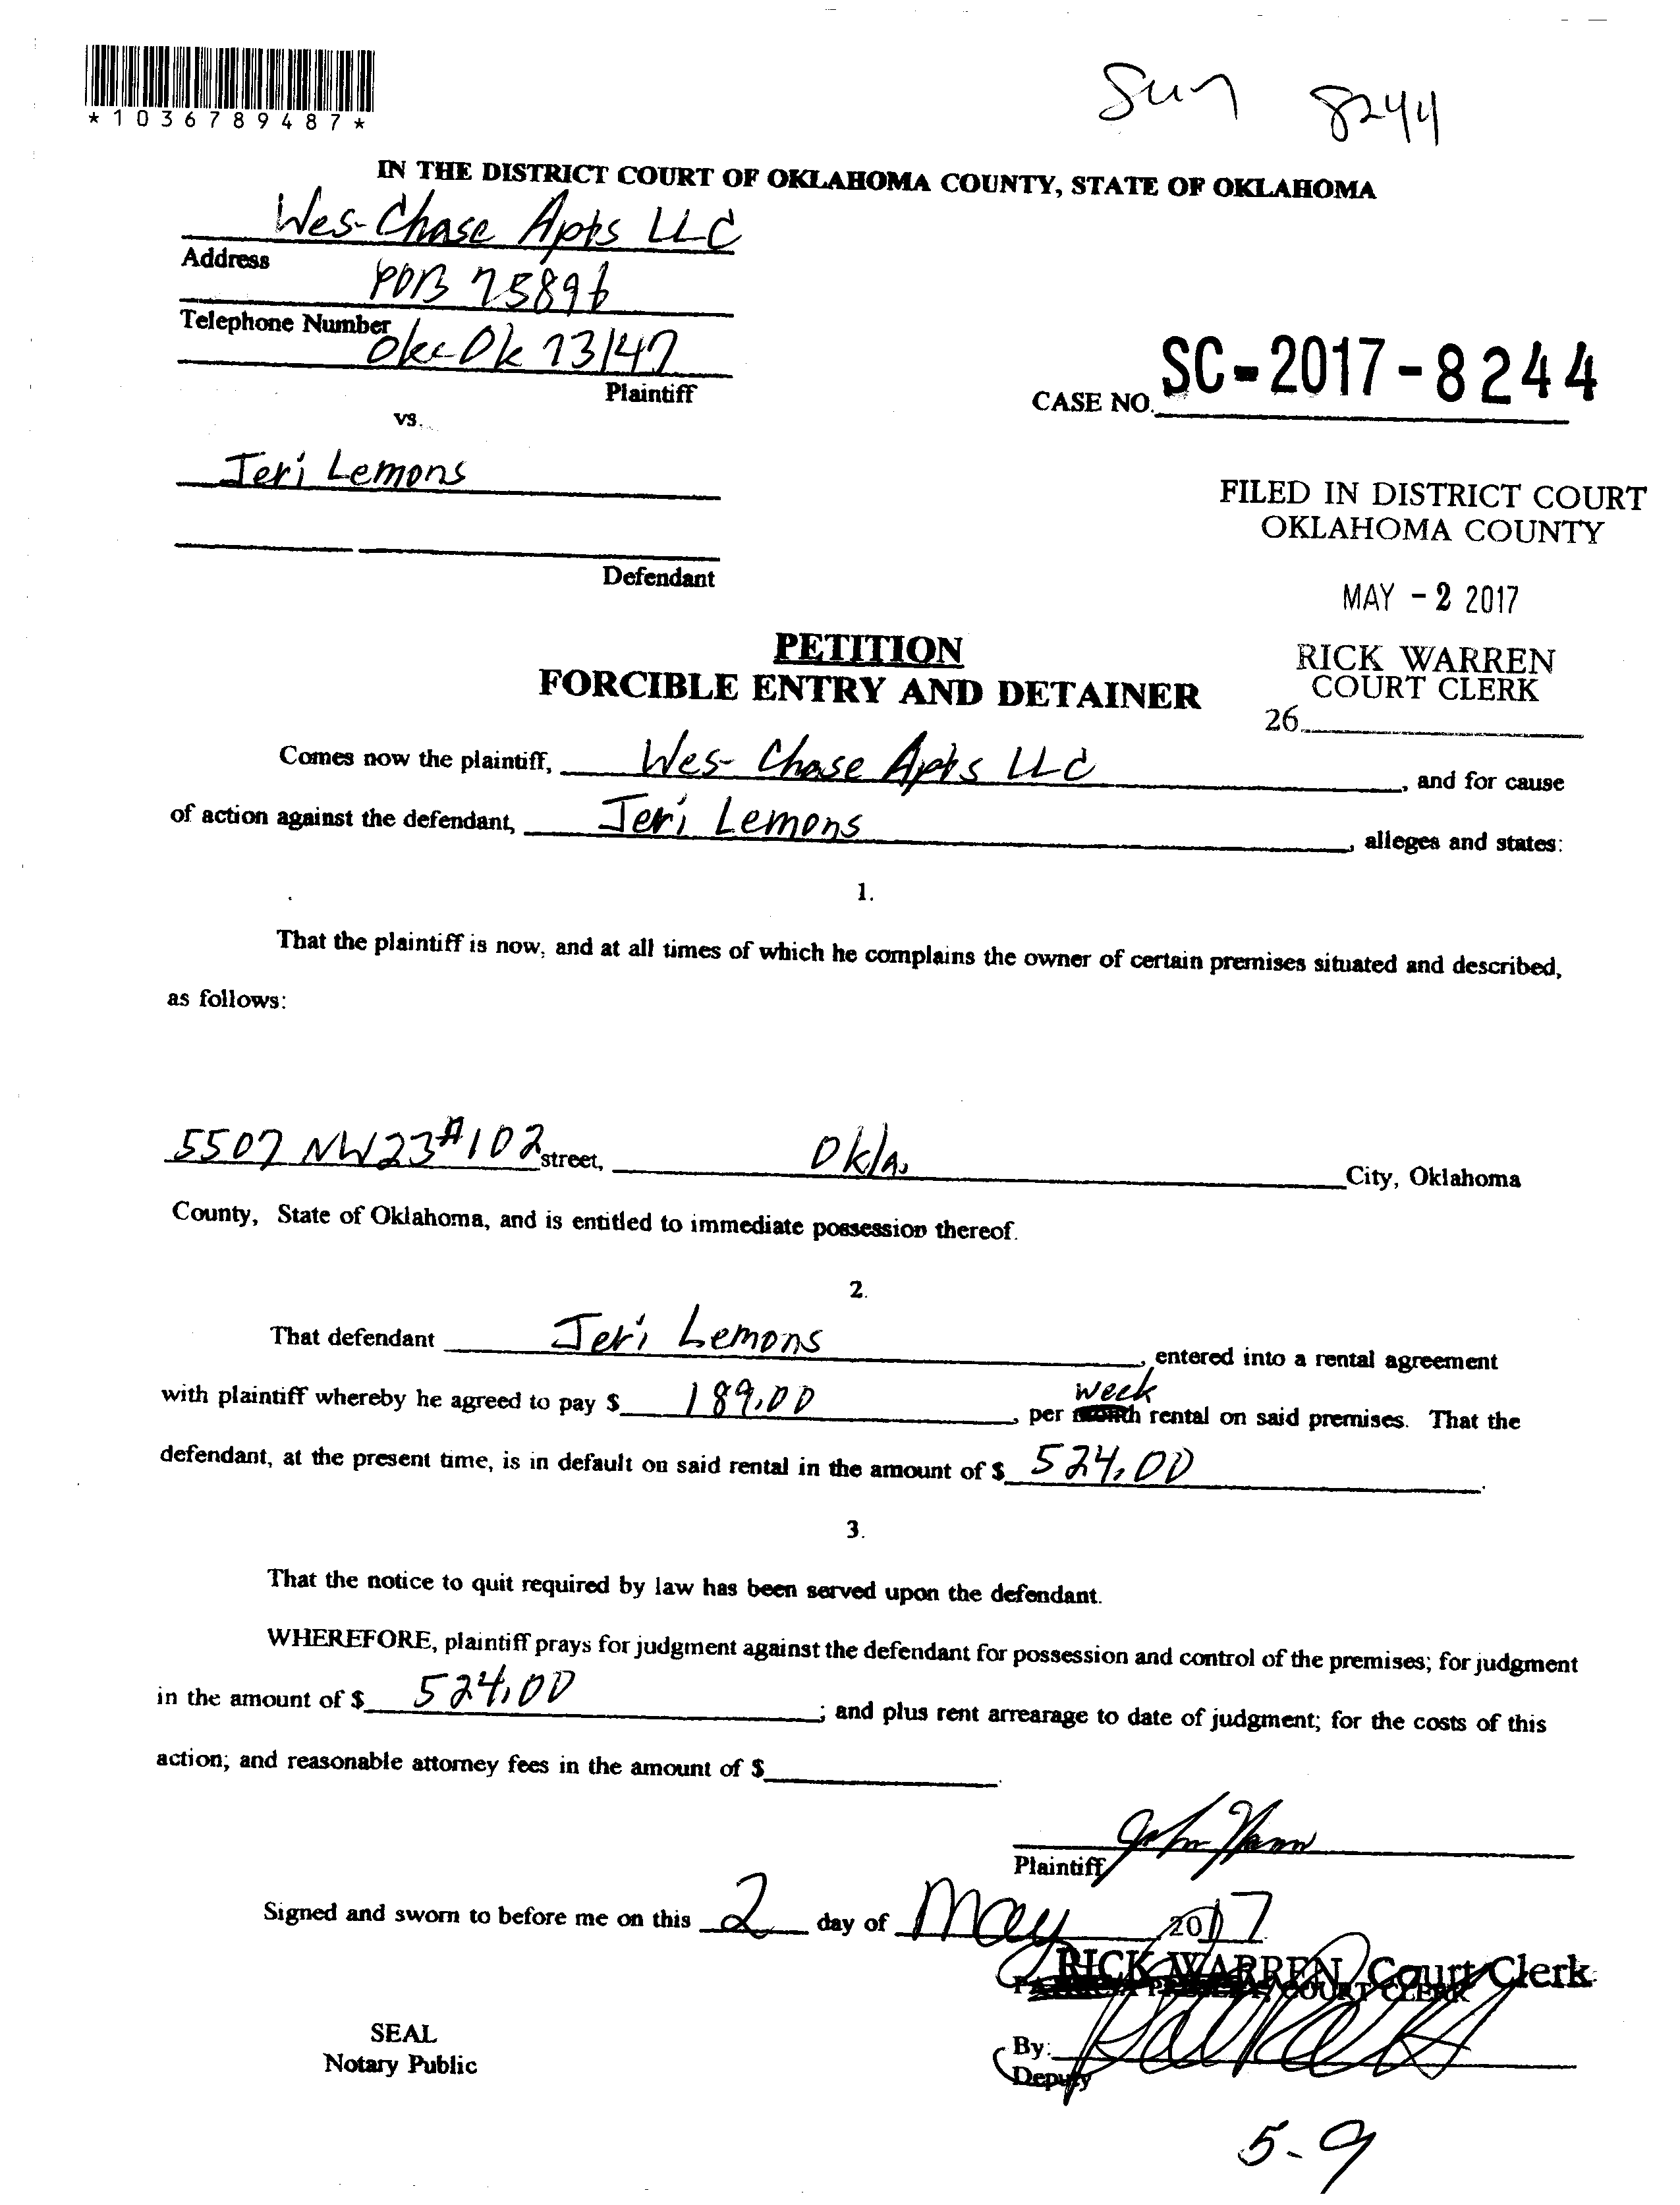 *1036789487*
Sum 8244
IN THE DISTRICT COURT OF OKLAHOMA COUNTY, STATE OF OKLAHOMA
Wes-Chase Apts LLC
Address
POB 75896
Telephone Number
Okc Ok 73147
Plaintiff
CASE NO. SC-2017-8244
vs.
Jeri Lemons
FILED IN DISTRICT COURT
OKLAHOMA COUNTY
Defendant
MAY -2 2017
PETITION
RICK WARREN
FORCIBLE ENTRY AND DETAINER
COURT CLERK
26
Comes now the plaintiff, Wes-Chase Apts LLC, and for cause
of action against the defendant, Jeri Lemons, alleges and states:
1.
That the plaintiff is now, and at all times of which he complains the owner of certain premises situated and described,
as follows:
5507 NW23 #102 street, Okla. City, Oklahoma
County, State of Oklahoma, and is entitled to immediate possession thereof.
2.
That defendant Jeri Lemons, entered into a rental agreement
week
with plaintiff whereby he agreed to pay $ 189.00, per month rental on said premises. That the
defendant, at the present time, is in default on said rental in the amount of $ 524.00.
3.
That the notice to quit required by law has been served upon the defendant.
WHEREFORE, plaintiff prays for judgment against the defendant for possession and control of the premises; for judgment
in the amount of $ 524.00; and plus rent arrearage to date of judgment; for the costs of this
action; and reasonable attorney fees in the amount of $.
Plaintiff
Signed and sworn to before me on this 2 day of May, 2017
RICK WARREN, Court Clerk
COURT CLERK
SEAL
By:
Notary Public
Deputy
5-9